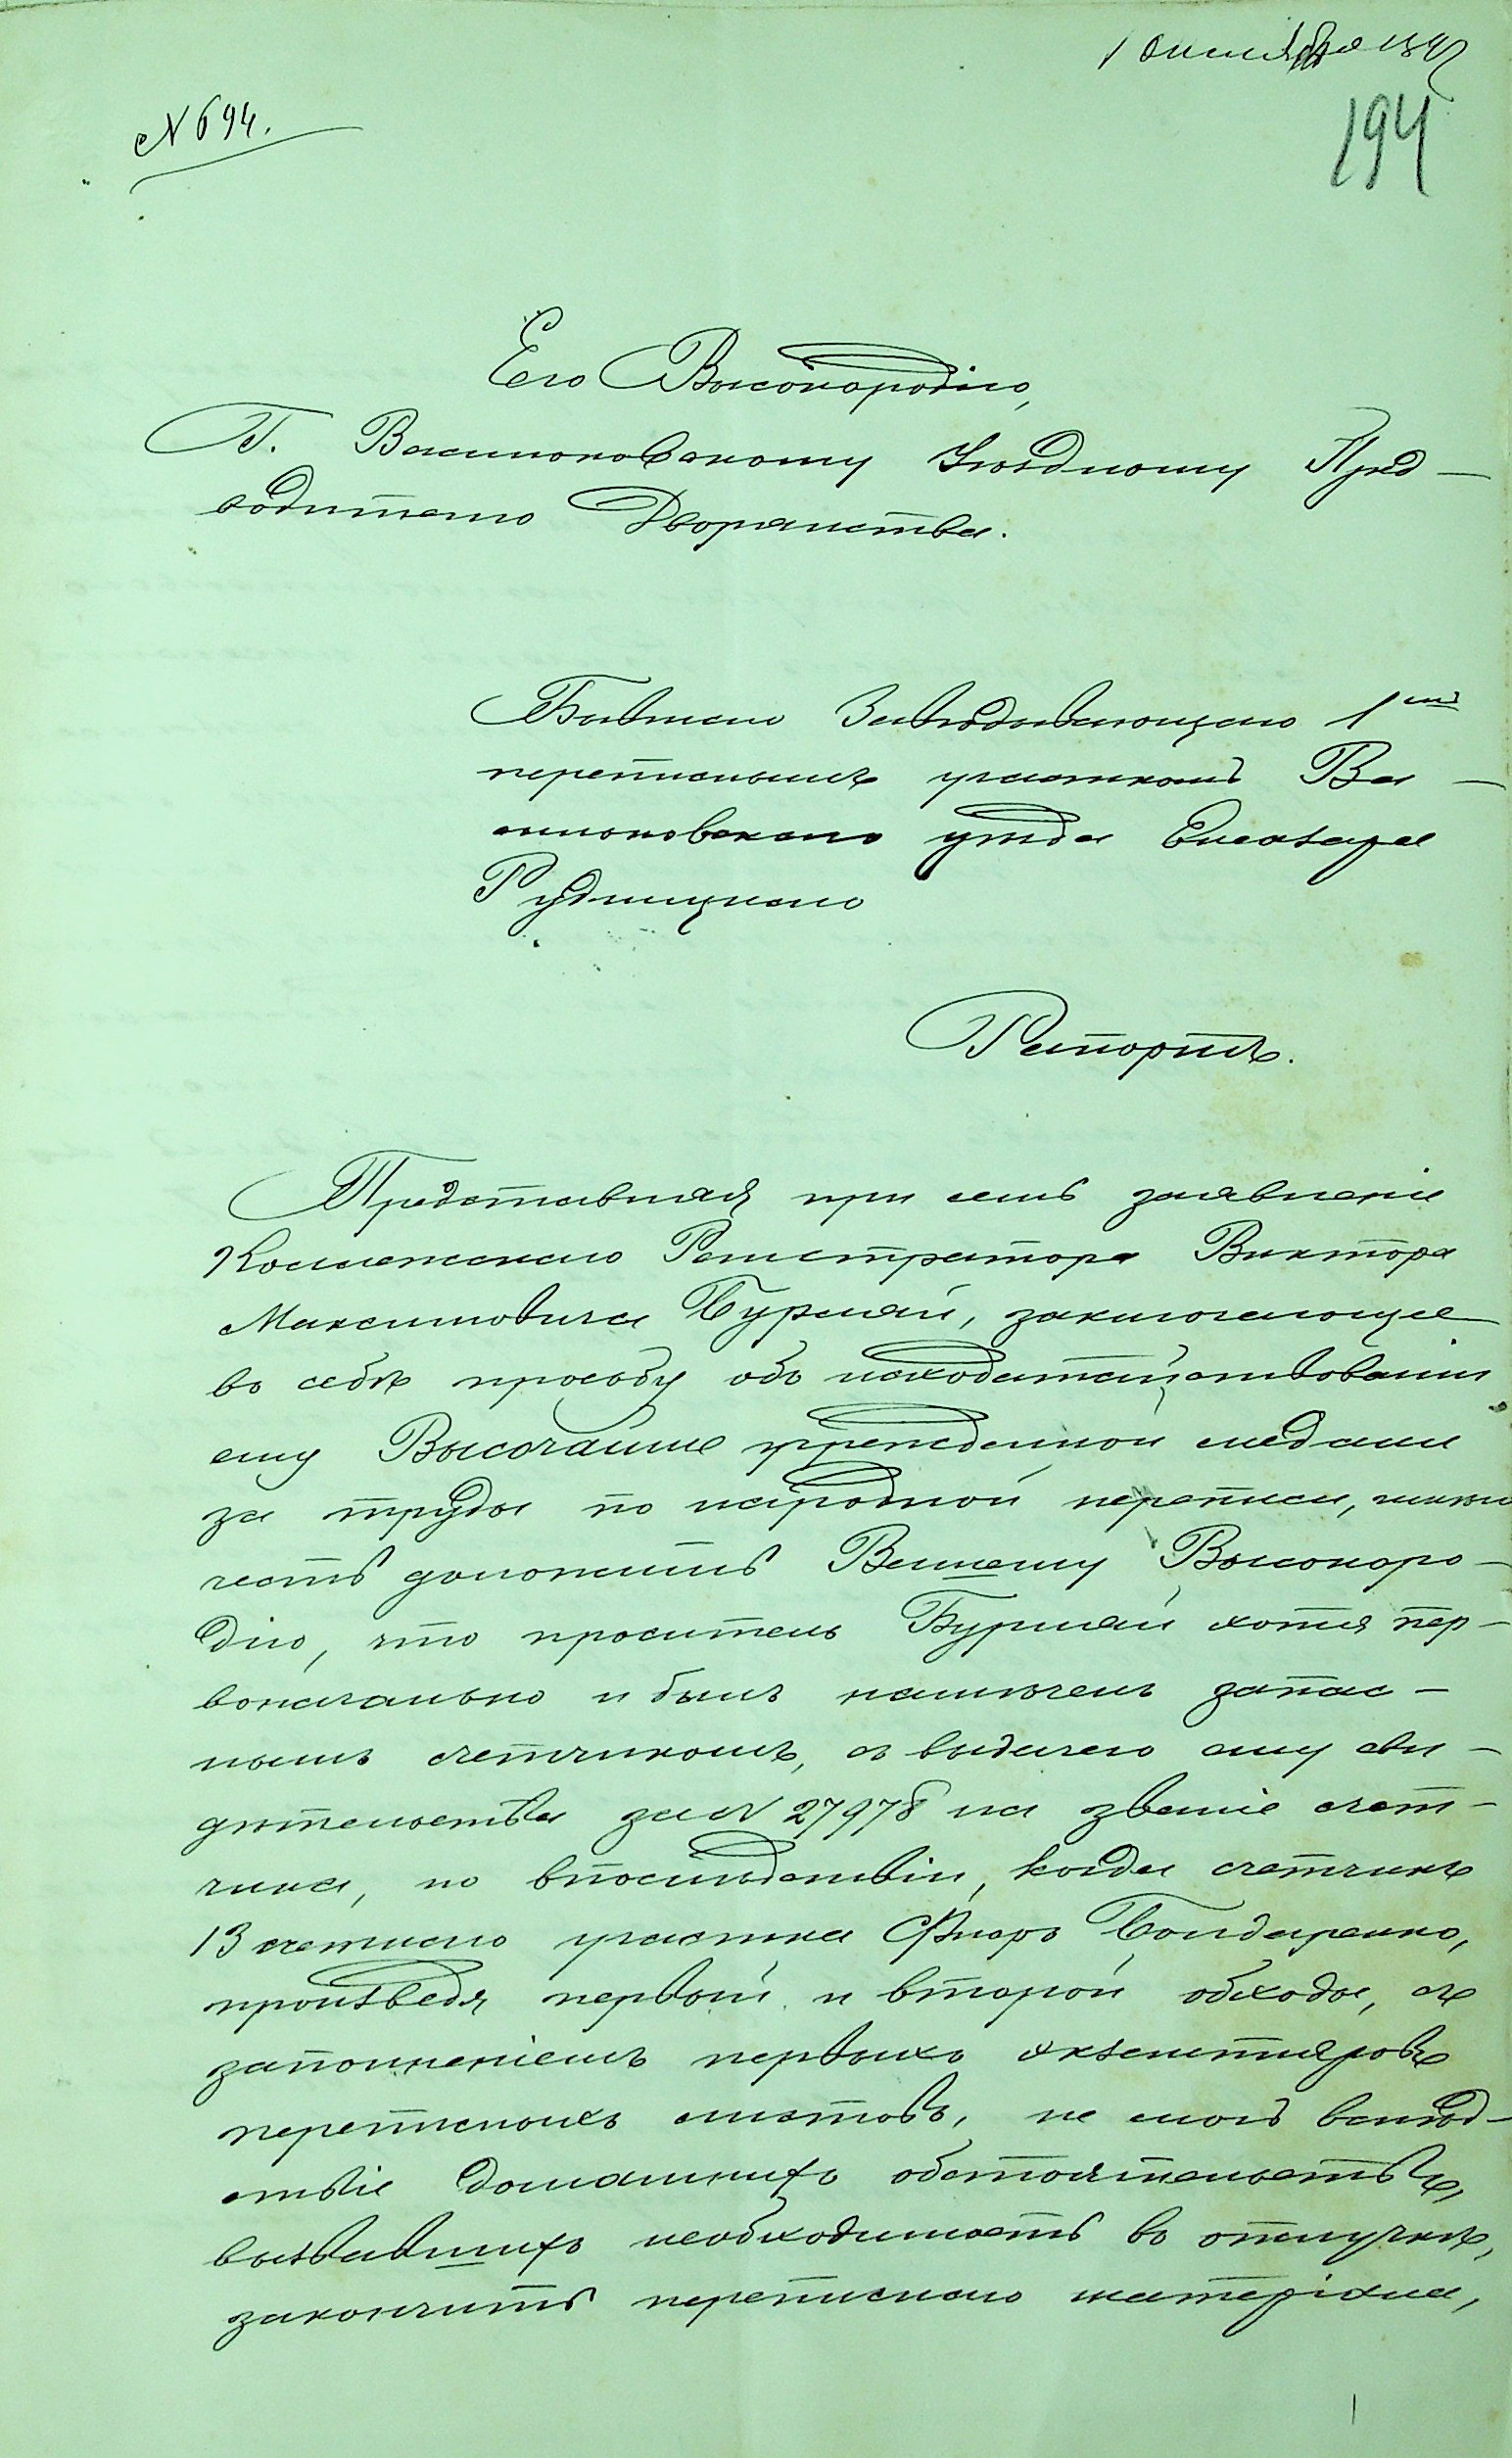 1 октября 1897
194
№ 694.
Его Высокородію,
Г. Васильковскому Уѣздному Пред-
водителю Дворянства.
Бывшаго Завѣдывающаго 1мъ
переписнымъ участкомъ Ва-
сильковскаго уѣзда Елеазара
Рудницкаго
Рапортъ.
Представляя при семъ заявленіе
Коллежскаго Регистратора Виктора
Максимовича Бурмай, заключающее
въ себѣ просьбу объ исходатайствованіи
ему Высочайше учрежденной медали
за труды по народной переписи, имѣю
честь доложить Вашему Высокоро-
дію, что проситель Бурмай хотя пер-
воначально и былъ назначенъ запас-
нымъ счетчикомъ, съ выдачею ему сви-
дѣтельства за № 27978 на званіе счет-
чика, но впослѣдствіи, когда счетчикъ
13 счетнаго участка Флоръ Бондаренко,
произведя первый и второй обходы, съ
заполненіемъ первыхъ экземпляровъ
переписныхъ листовъ, не могъ вслѣд-
ствіе домашнихъ обстоятельствъ,
вызвавшихъ необходимость въ отлучкѣ,
закончить переписнаго матеріала,